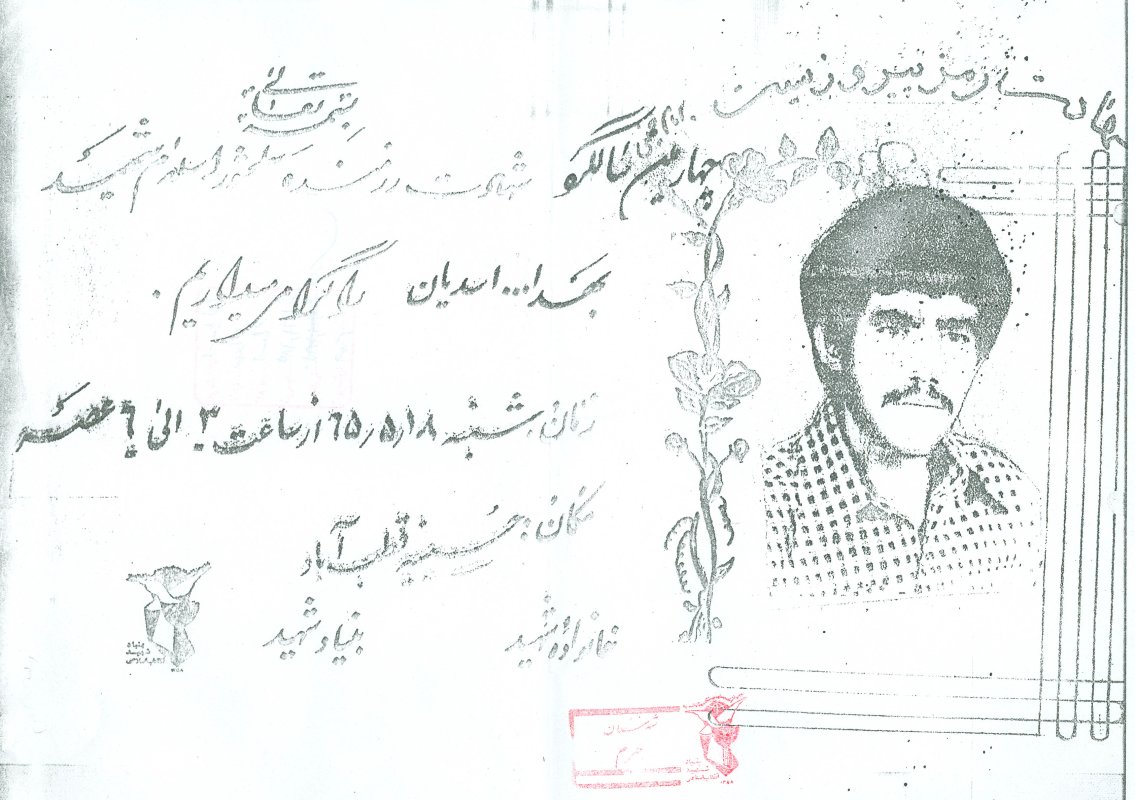 شهادت رمز پیروزیست
بسمه تعالی
چهارمین سالگرد شهادت رزمنده سلحشور اسلام شهید
بهدا... اسدیان را گرامی میداریم .
زمان: شنبه ۶۵٫۵٫۱۸ از ساعت ۳ الی ۶ عصر
مکان: حسینیه قطب آباد
خانواده شهید
بنیاد شهید
بنیاد شهید انقلاب اسلامی